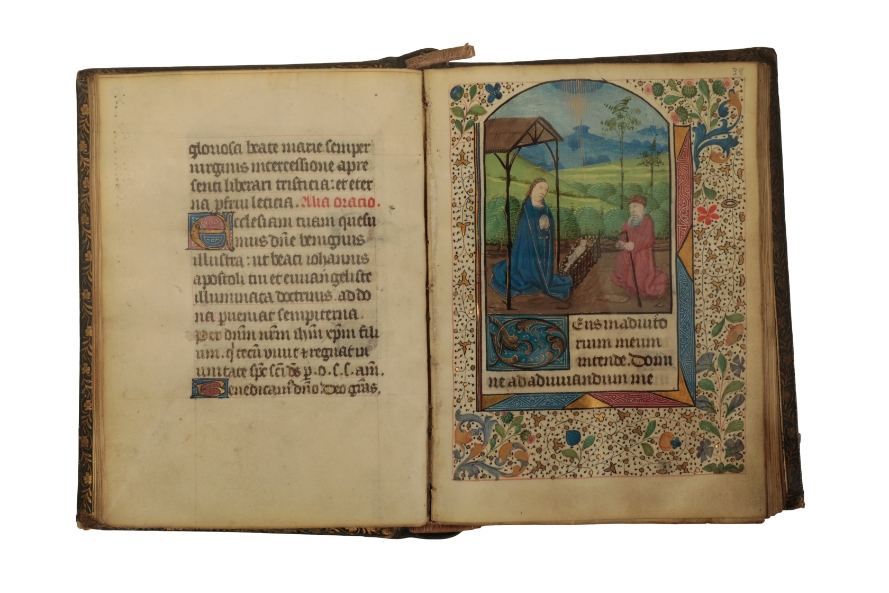 gloriosa beate marie semper
virginis intercessione a pre
senti liberari tristicia: et eter
na pfrui leticia. Alia oratio.
Ecclesiam tuam quesu
mus dne benignus
illustra: ut beati iohannis
apostoli tui et euuangeliste
illuminata doctrinis. ad do
na pueniat sempiterna.
Per dnm nrm ihm xpm fili
um. q tecu viuit & regnat in
unitate sps sci ds p. o. s. s. am.
Benedicam dno Deo gras.
38
Deus in adiuto
rium meum
intende. Domi
ne ad adiuuandum me